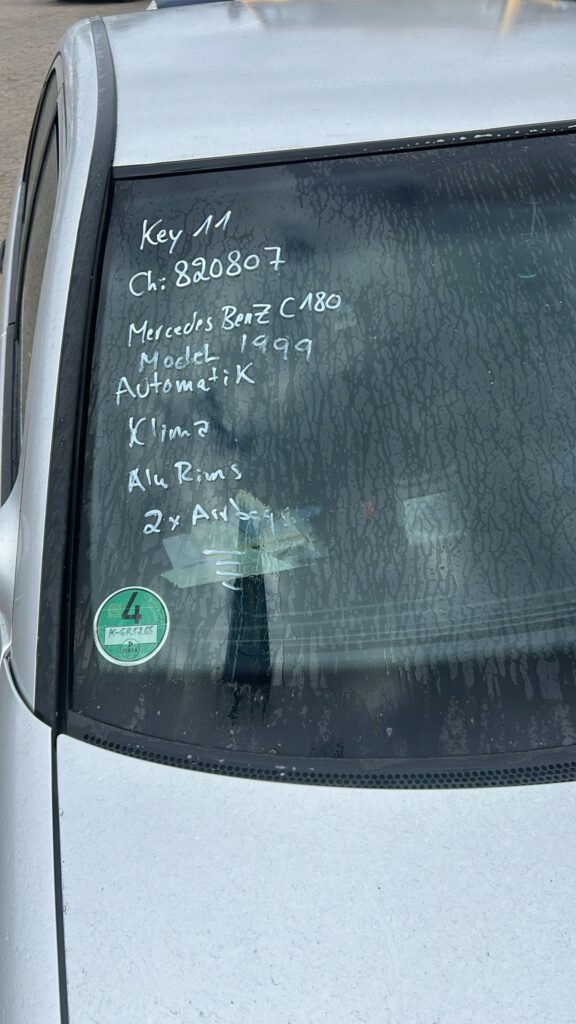 Key 11
Ch: 820807
Mercedes Benz C180
Model 1999
Automatik
Klima
Alu Rims
2x Airbags
4